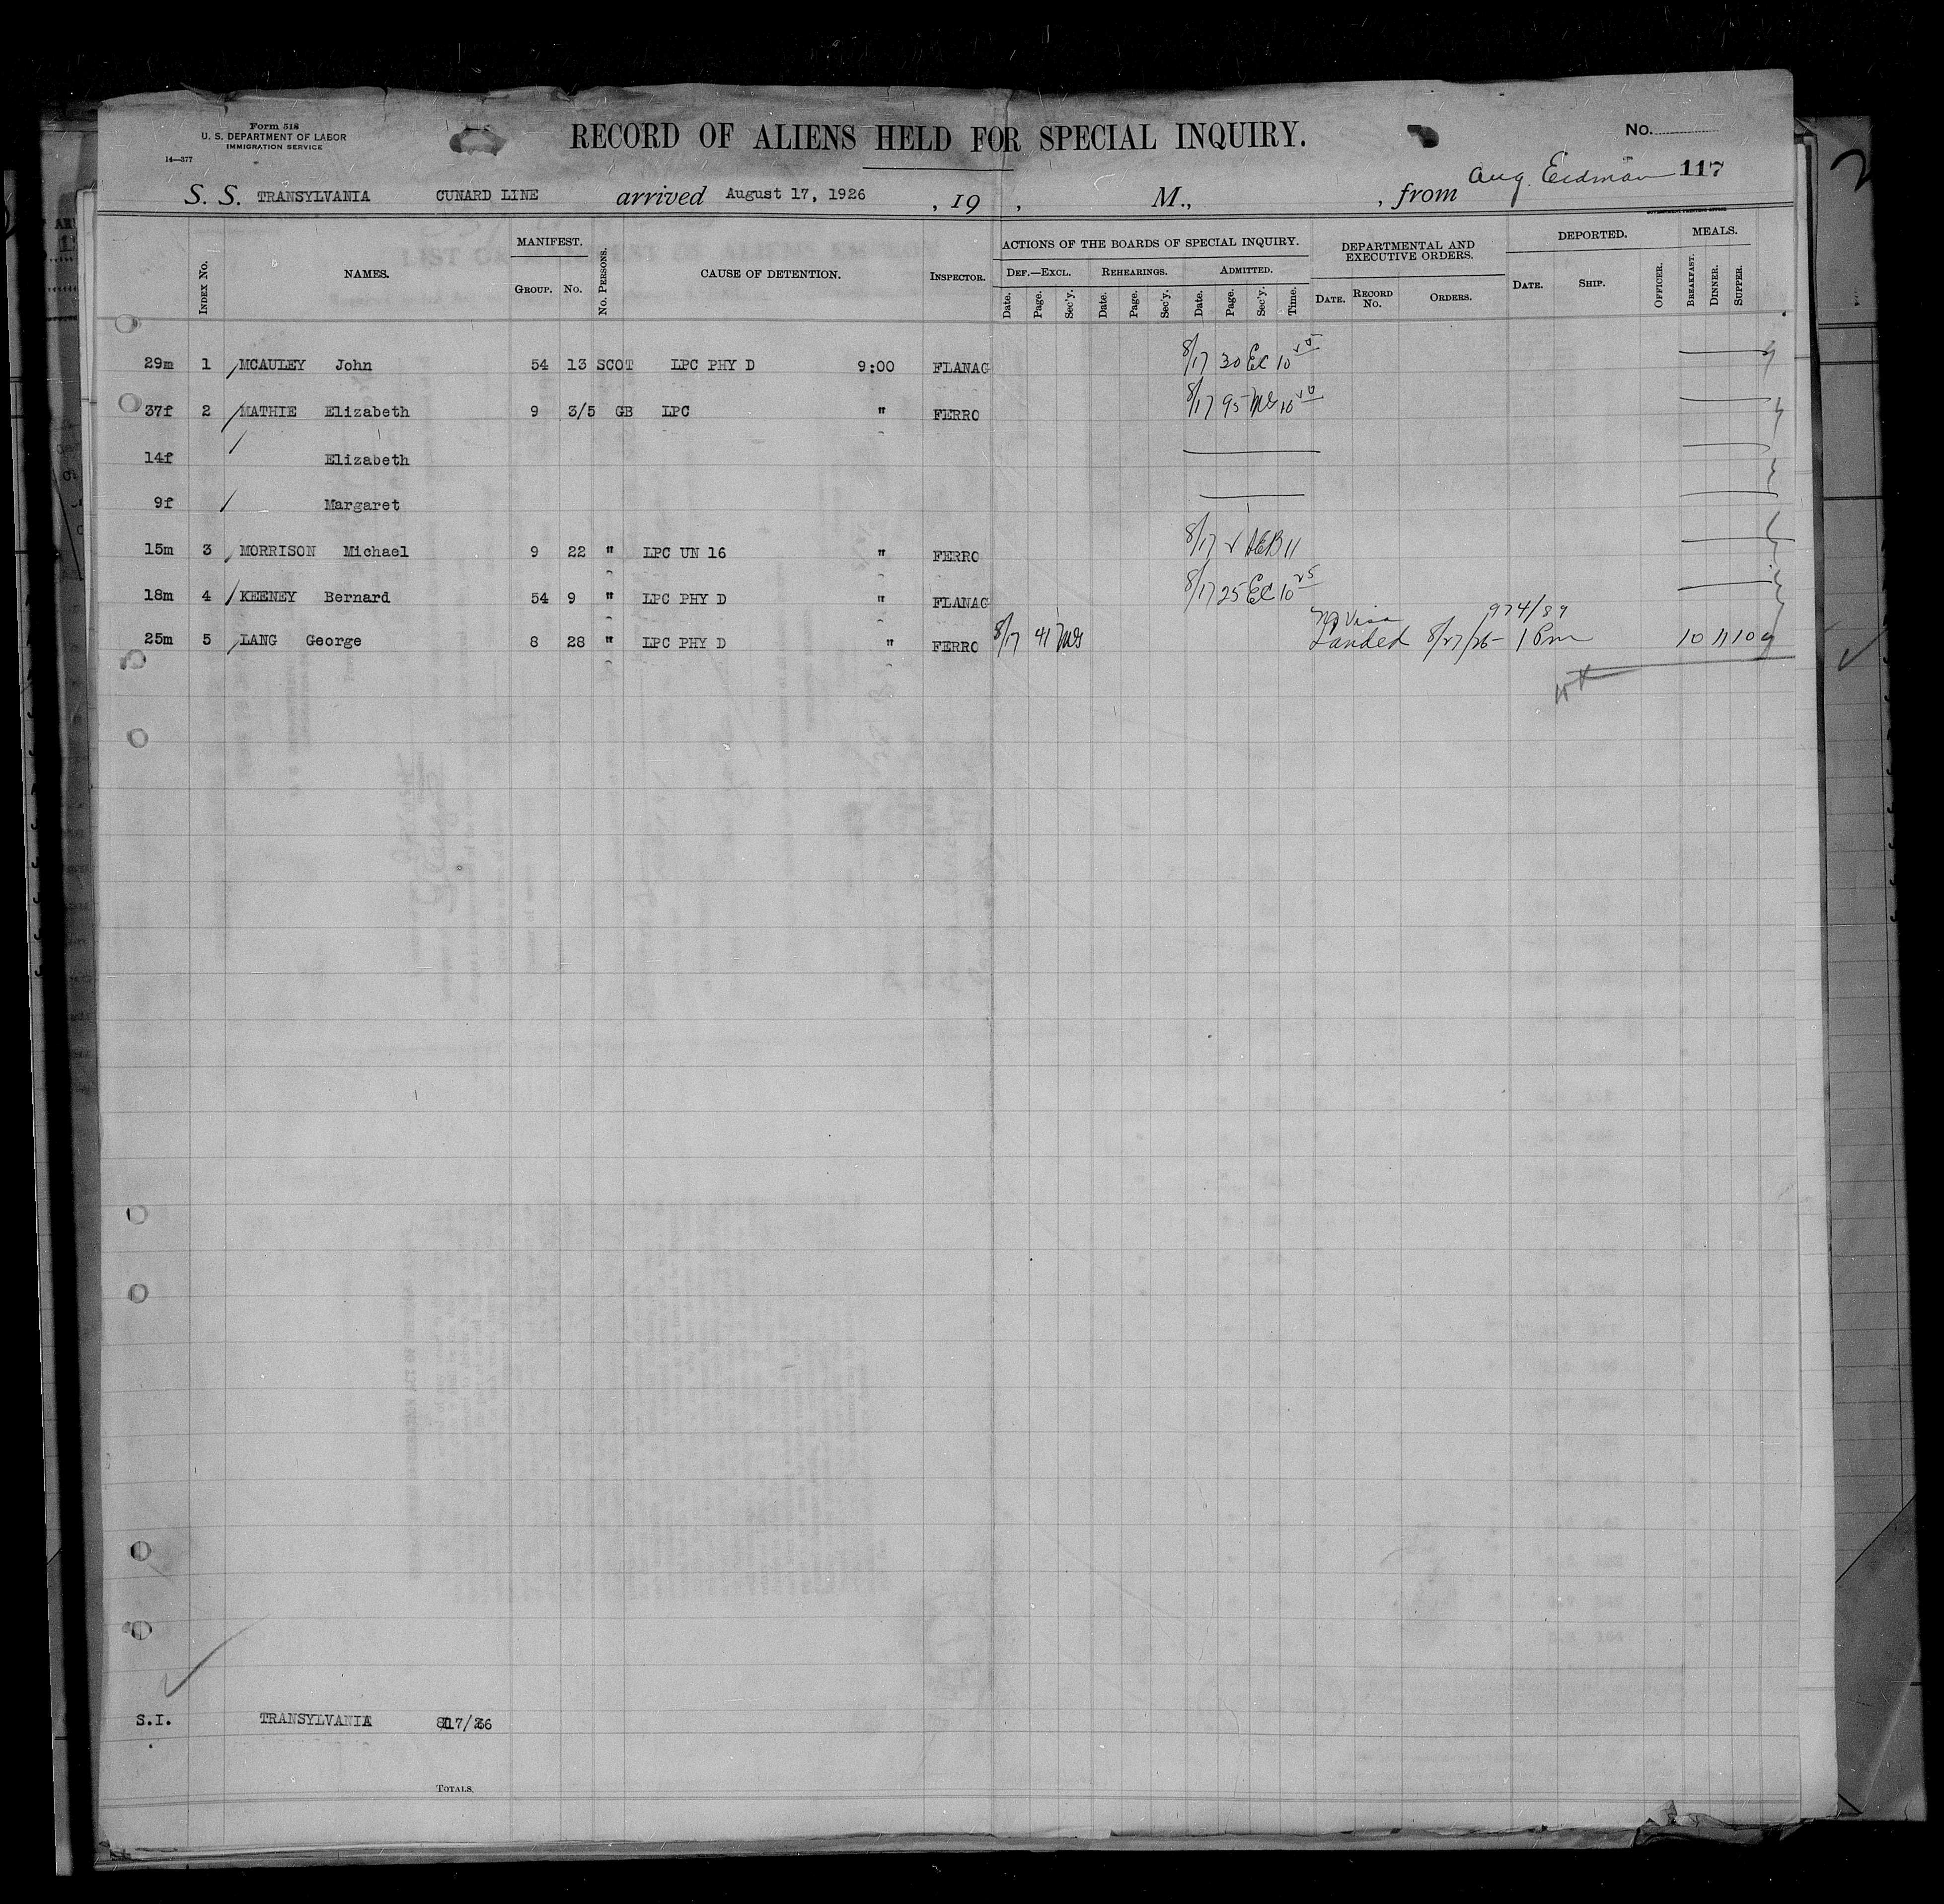 Form 518
U. S. DEPARTMENT OF LABOR
IMMIGRATION SERVICE
14—377
RECORD OF ALIENS HELD FOR SPECIAL INQUIRY.
No.
Aug. Eidman 117
S. S. TRANSYLVANIA CUNARD LINE arrived August 17, 1926 , 19 , M., , from
INDEX No. NAMES. MANIFEST. GROUP. No. No. PERSONS. CAUSE OF DETENTION. INSPECTOR.
ACTIONS OF THE BOARDS OF SPECIAL INQUIRY. DEF.—EXCL. REHEARINGS. ADMITTED.
Date. Page. Sec'y. Date. Page. Sec'y. Date. Page. Sec'y. Time.
DEPARTMENTAL AND EXECUTIVE ORDERS. DATE. RECORD No. ORDERS.
DEPORTED. DATE. SHIP. OFFICER.
MEALS. BREAKFAST. DINNER. SUPPER.
29m 1 MCAULEY John 54 13 SCOT LPC PHY D 9:00 FLANAG 8/17 30 EC 10
37f 2 MATHIE Elizabeth 9 3/5 GB LPC " FERRO 8/17 95 MG 10
14f Elizabeth
9f Margaret
15m 3 MORRISON Michael 9 22 " LPC UN 16 " FERRO 8/17 AEB 11
18m 4 KEENEY Bernard 54 9 " LPC PHY D " FLANAG 8/17 25 EC 10 25
No Visa 974/89
25m 5 LANG George 8 28 " LPC PHY D " FERRO 8/17 41 MG Landed 8/27/26 - 1 Pm 10 11 10
S.I. TRANSYLVANIA 8/17/26
TOTALS.